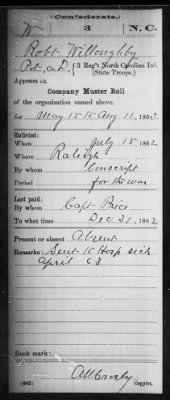 Confederate
W 3 N.C.
Robt Willoughby
Pvt, Co. D, 3 Reg't North Carolina Inf.
(State Troops.)
Appears on
Company Muster Roll
of the organization named above,
for May 15 to Aug 11, 1863.
Enlisted:
When July 15, 1862
Where Raleigh
By whom Conscript
Period for the war
Last paid:
By whom Capt Price
To what time Dec 31, 1862
Present or absent Absent
Remarks: Sent to Hosp sick
April 63
Book mark:
(642)
Copyist.